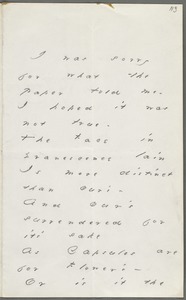 113
I was sorry
for what the
Paper told me -
I hoped it was
not true -
The Face in
Evanescence lain
Is more distinct
than our's -
And our's
surrendered for
it's sake
As Capsules are
for Flower's -
Or is it the